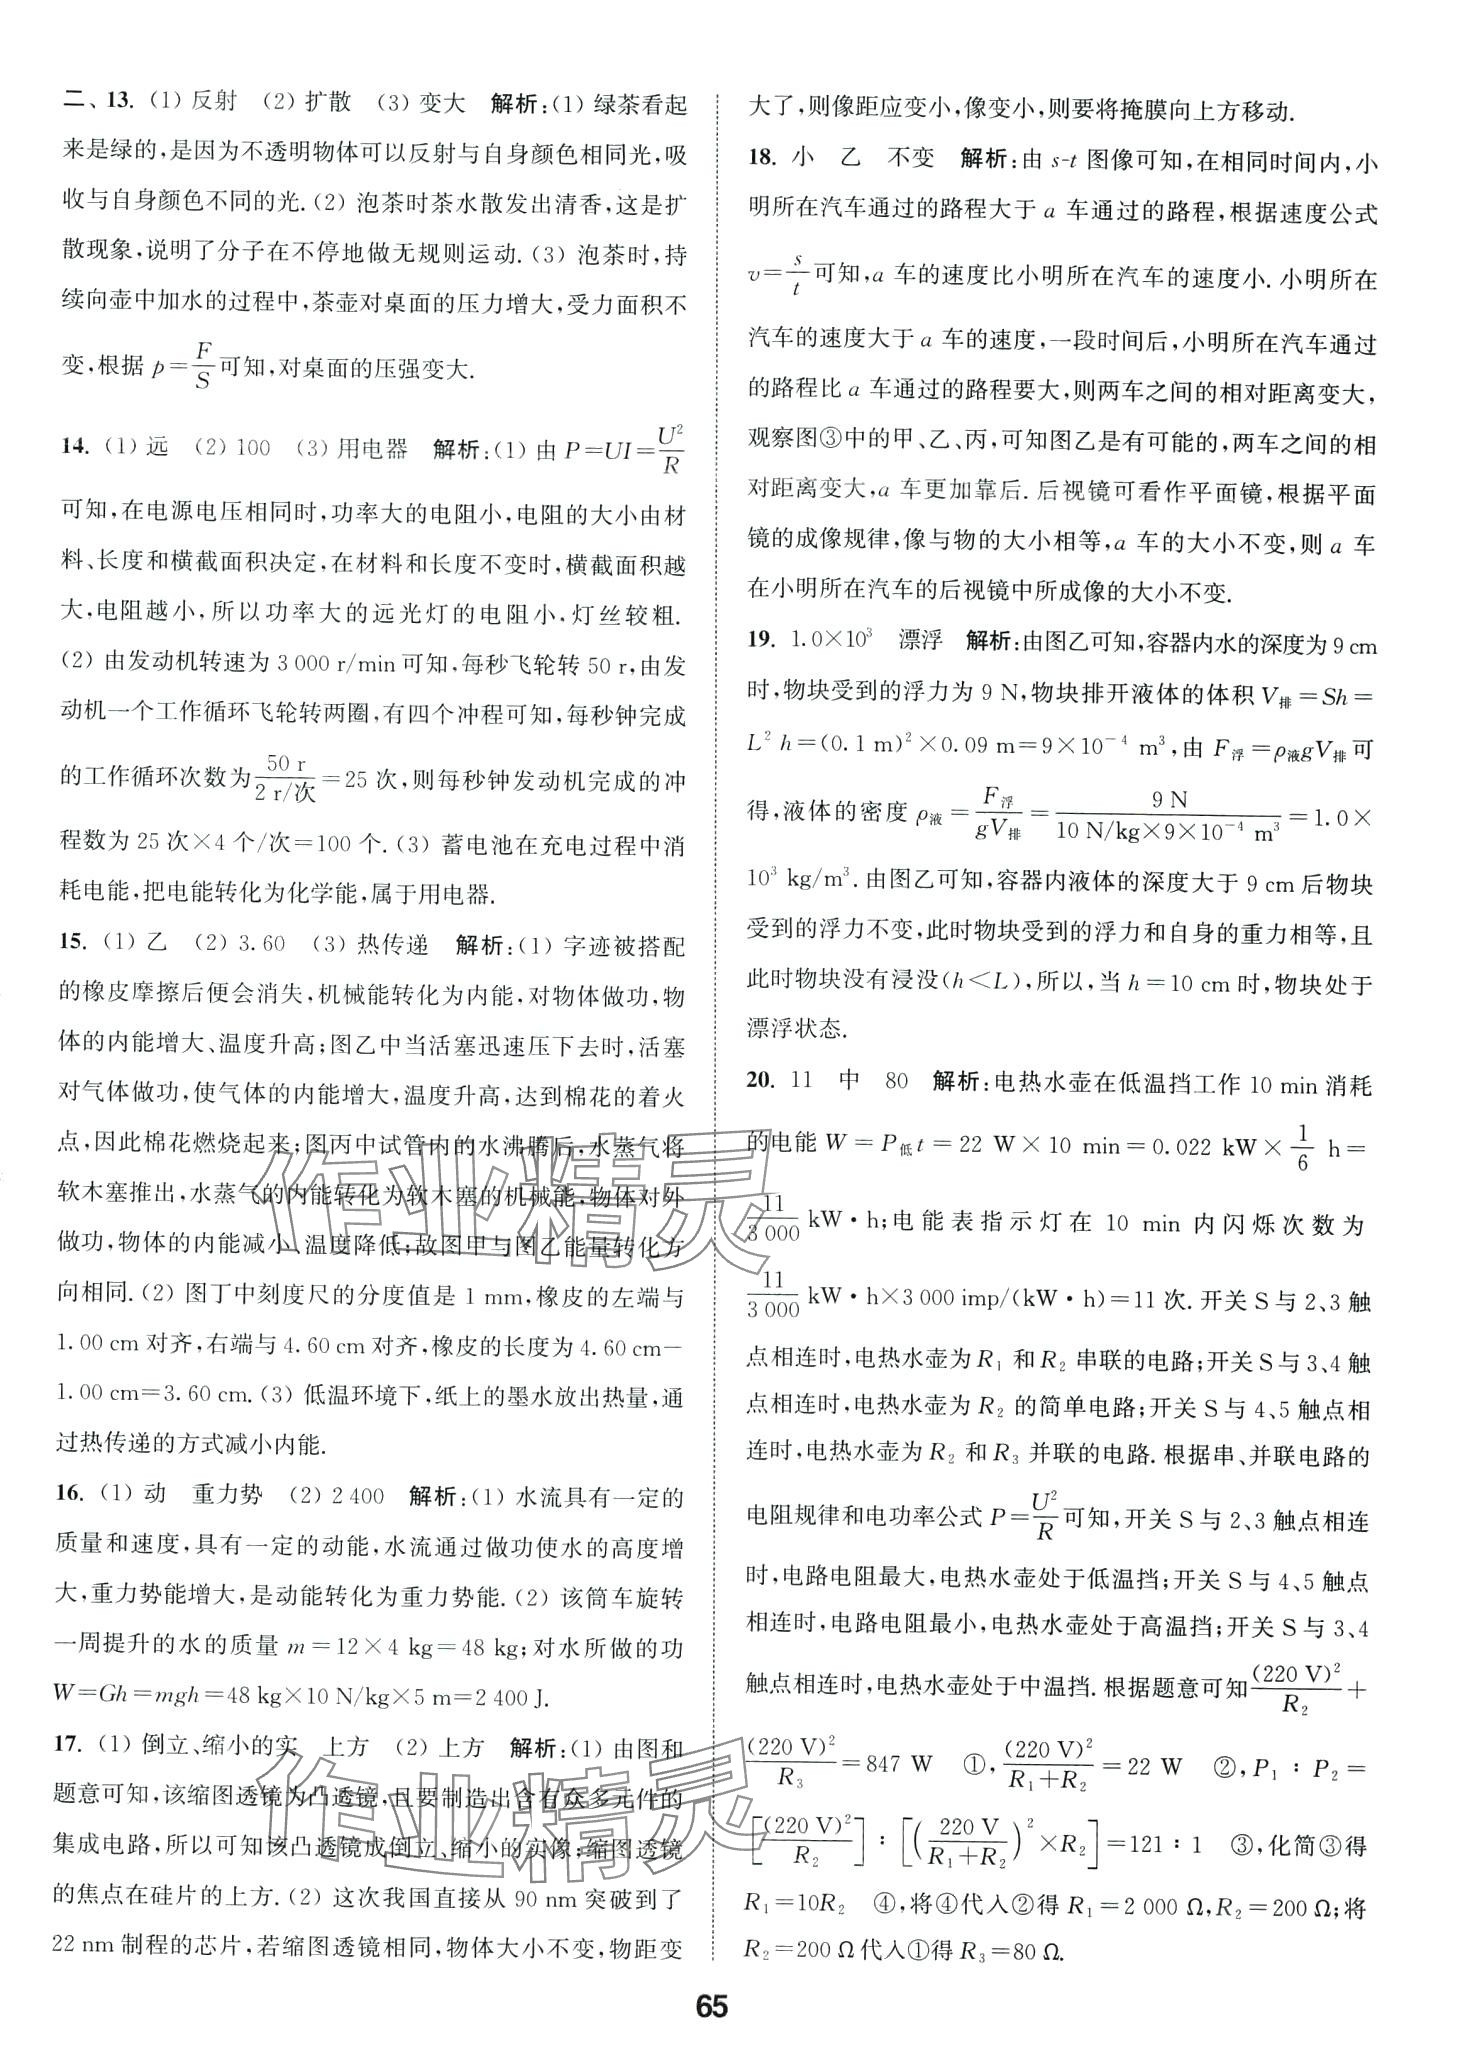 二、13. (1) 反射 (2) 扩散 (3) 变大 解析:(1) 绿茶看起
来是绿的,是因为不透明物体可以反射与自身颜色相同光,吸
收与自身颜色不同的光.(2) 泡茶时茶水散发出清香,这是扩
散现象,说明了分子在不停地做无规则运动.(3) 泡茶时,持
续向壶中加水的过程中,茶壶对桌面的压力增大,受力面积不
变,根据 p=F/S可知,对桌面的压强变大.
14. (1) 远 (2) 100 (3) 用电器 解析:(1) 由 P=UI=U²/R
可知,在电源电压相同时,功率大的电阻小,电阻的大小由材
料、长度和横截面积决定,在材料和长度不变时,横截面积越
大,电阻越小,所以功率大的远光灯的电阻小,灯丝较粗.
(2) 由发动机转速为 3 000 r/min 可知,每秒飞轮转 50 r,由发
动机一个工作循环飞轮转两圈,有四个冲程可知,每秒钟完成
的工作循环次数为50 r/2 r/次=25 次,则每秒钟发动机完成的冲
程数为 25 次×4 个/次=100 个.(3) 蓄电池在充电过程中消
耗电能,把电能转化为化学能,属于用电器.
15. (1) 乙 (2) 3.60 (3) 热传递 解析:(1) 字迹被搭配
的橡皮摩擦后便会消失,机械能转化为内能,对物体做功,物
体的内能增大、温度升高;图乙中当活塞迅速压下去时,活塞
对气体做功,使气体的内能增大,温度升高,达到棉花的着火
点,因此棉花燃烧起来;图丙中试管内的水沸腾后,水蒸气将
软木塞推出,水蒸气的内能转化为软木塞的机械能,物体对外
做功,物体的内能减小、温度降低;故图甲与图乙能量转化方
向相同.(2) 图丁中刻度尺的分度值是 1 mm,橡皮的左端与
1.00 cm 对齐,右端与 4.60 cm 对齐,橡皮的长度为 4.60 cm－
1.00 cm=3.60 cm.(3) 低温环境下,纸上的墨水放出热量,通
过热传递的方式减小内能.
16. (1) 动 重力势 (2) 2 400 解析:(1) 水流具有一定的
质量和速度,具有一定的动能,水流通过做功使水的高度增
大,重力势能增大,是动能转化为重力势能.(2) 该筒车旋转
一周提升的水的质量 m=12×4 kg=48 kg;对水所做的功
W=Gh=mgh=48 kg×10 N/kg×5 m=2 400 J.
17. (1) 倒立、缩小的实 上方 (2) 上方 解析:(1) 由图和
题意可知,该缩图透镜为凸透镜,且要制造出含有众多元件的
集成电路,所以可知该凸透镜成倒立、缩小的实像;缩图透镜
的焦点在硅片的上方.(2) 这次我国直接从 90 nm 突破到了
22 nm 制程的芯片,若缩图透镜相同,物体大小不变,物距变
大了,则像距应变小,像变小,则要将掩膜向上方移动.
18. 小 乙 不变 解析:由 s-t 图像可知,在相同时间内,小
明所在汽车通过的路程大于 a 车通过的路程,根据速度公式
v=s/t可知,a 车的速度比小明所在汽车的速度小.小明所在
汽车的速度大于 a 车的速度,一段时间后,小明所在汽车通过
的路程比 a 车通过的路程要大,则两车之间的相对距离变大,
观察图③中的甲、乙、丙,可知图乙是有可能的,两车之间的相
对距离变大,a 车更加靠后.后视镜可看作平面镜,根据平面
镜的成像规律,像与物的大小相等,a 车的大小不变,则 a 车
在小明所在汽车的后视镜中所成像的大小不变.
19. 1.0×10³ 漂浮 解析:由图乙可知,容器内水的深度为 9 cm
时,物块受到的浮力为 9 N,物块排开液体的体积 V排=Sh=
L² h=(0.1 m)²×0.09 m=9×10⁻⁴ m³,由 F浮=ρ液gV排可
得,液体的密度 ρ液=F浮/gV排=9 N/10 N/kg×9×10⁻⁴ m³=1.0×
10³ kg/m³.由图乙可知,容器内液体的深度大于 9 cm 后物块
受到的浮力不变,此时物块受到的浮力和自身的重力相等,且
此时物块没有浸没(h<L),所以,当 h=10 cm 时,物块处于
漂浮状态.
20. 11 中 80 解析:电热水壶在低温挡工作 10 min 消耗
的电能 W=P低t=22 W×10 min=0.022 kW×1/6 h=
11/3 000 kW·h;电能表指示灯在 10 min 内闪烁次数为
11/3 000 kW·h×3 000 imp/(kW·h)=11 次.开关 S 与 2、3 触
点相连时,电热水壶为 R₁ 和 R₂ 串联的电路;开关 S 与 3、4 触
点相连时,电热水壶为 R₂ 的简单电路;开关 S 与 4、5 触点相
连时,电热水壶为 R₂ 和 R₃ 并联的电路.根据串、并联电路的
电阻规律和电功率公式 P=U²/R可知,开关 S 与 2、3 触点相连
时,电路电阻最大,电热水壶处于低温挡;开关 S 与 4、5 触点
相连时,电路电阻最小,电热水壶处于高温挡;开关 S 与 3、4
触点相连时,电热水壶处于中温挡.根据题意可知(220 V)²/R₂＋
(220 V)²/R₃=847 W ①,(220 V)²/R₁+R₂=22 W ②,P₁∶P₂=
[(220 V)²/R₂]∶[(220 V/R₁+R₂)²×R₂]=121∶1 ③,化简③得
R₁=10R₂ ④,将④代入②得 R₁=2 000 Ω,R₂=200 Ω;将
R₂=200 Ω代入①得 R₃=80 Ω.
作业精灵
作业精灵
65